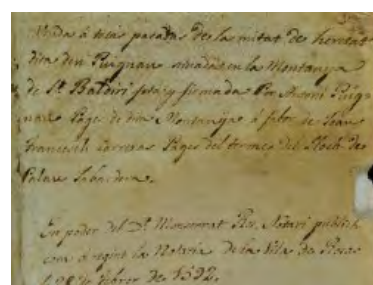 Venda á totas passadas de la mitat de heretat
dita den Puignau situada en la Montanya
de St. Baldiri feta y firmada Per Antoni Puig-
nau Pages de dita Montanya á fabor de Joan
Francesch Carreras Pages del terme del Lloch de
Palau Sabardera.
En poder del Dr. Monserrat Notari publich
com á regint la Notaria de la Vila de Rosas
á 28 de febrer de 1592.